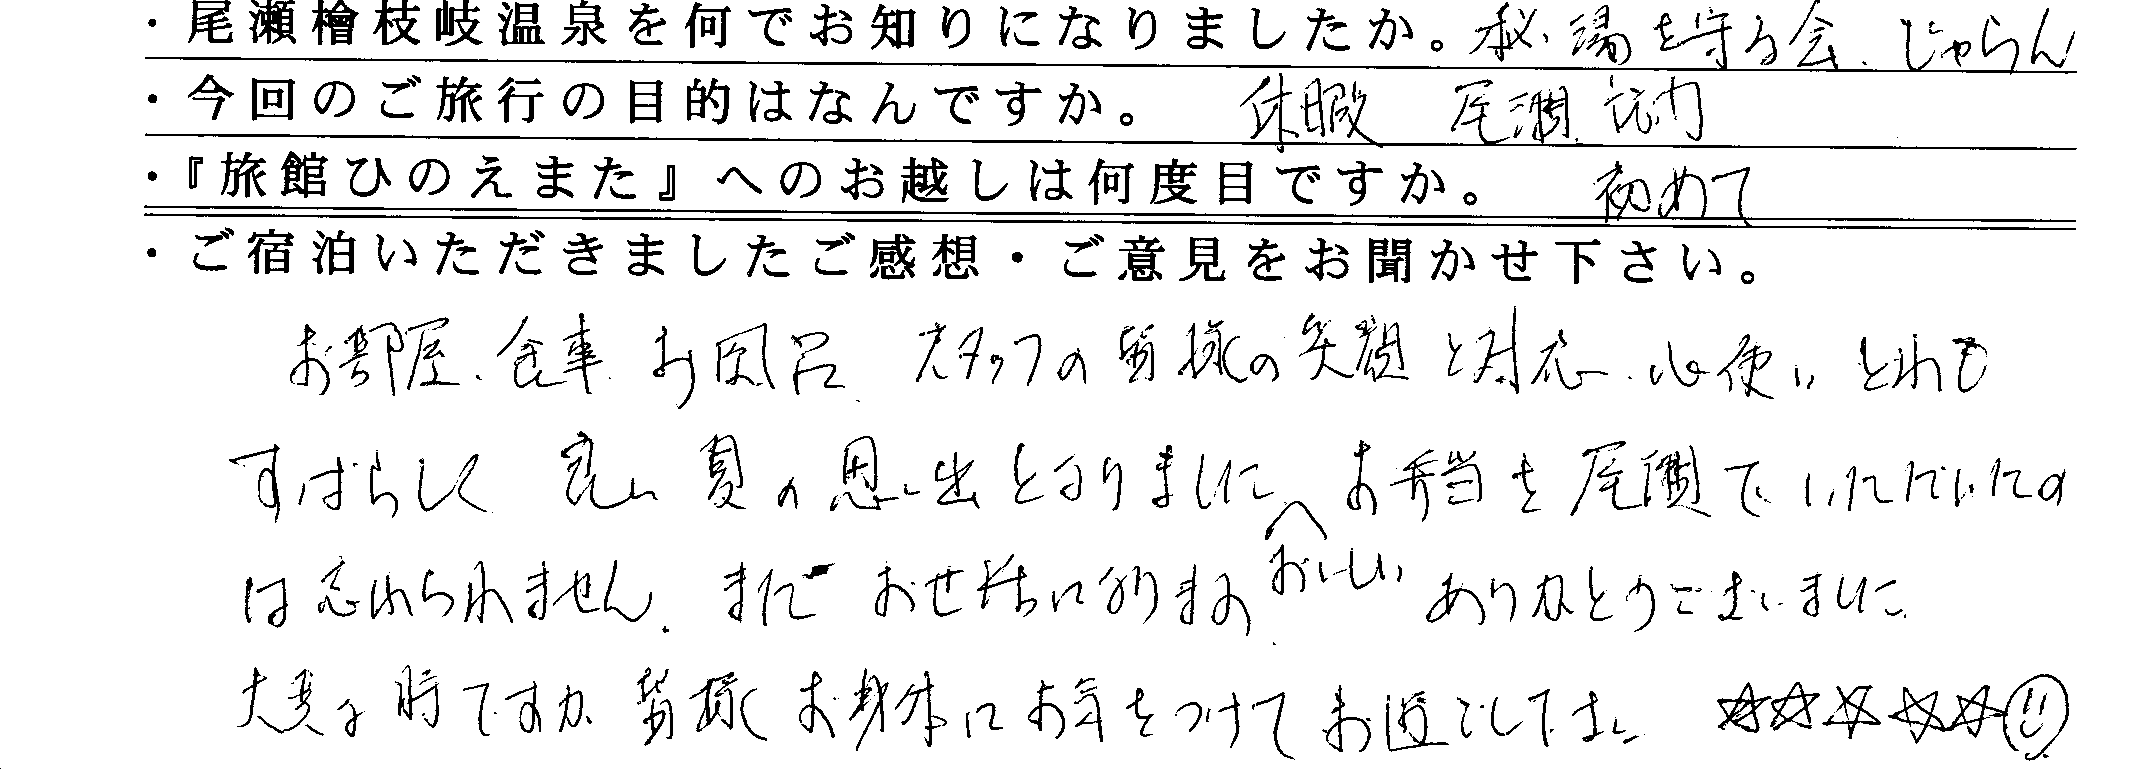 ・尾瀬檜枝岐温泉を何でお知りになりましたか。秘湯を守る会、じゃらん
・今回のご旅行の目的はなんですか。 休暇 尾瀬
・『旅館ひのえまた』へのお越しは何度目ですか。 初めて
・ご宿泊いただきましたご感想・ご意見をお聞かせ下さい。
お部屋、食事、お風呂、スタッフの皆様の笑顔と対応、心使い、とれも
すばらしく 良い夏の思い出となりました。お弁当を尾瀬でいただいたの
は忘れられません。また お世話になります。おいしい ありがとうございました。
大変な時ですが、皆様 お身体にお気をつけてお過ごし下さい ☆☆☆☆☆